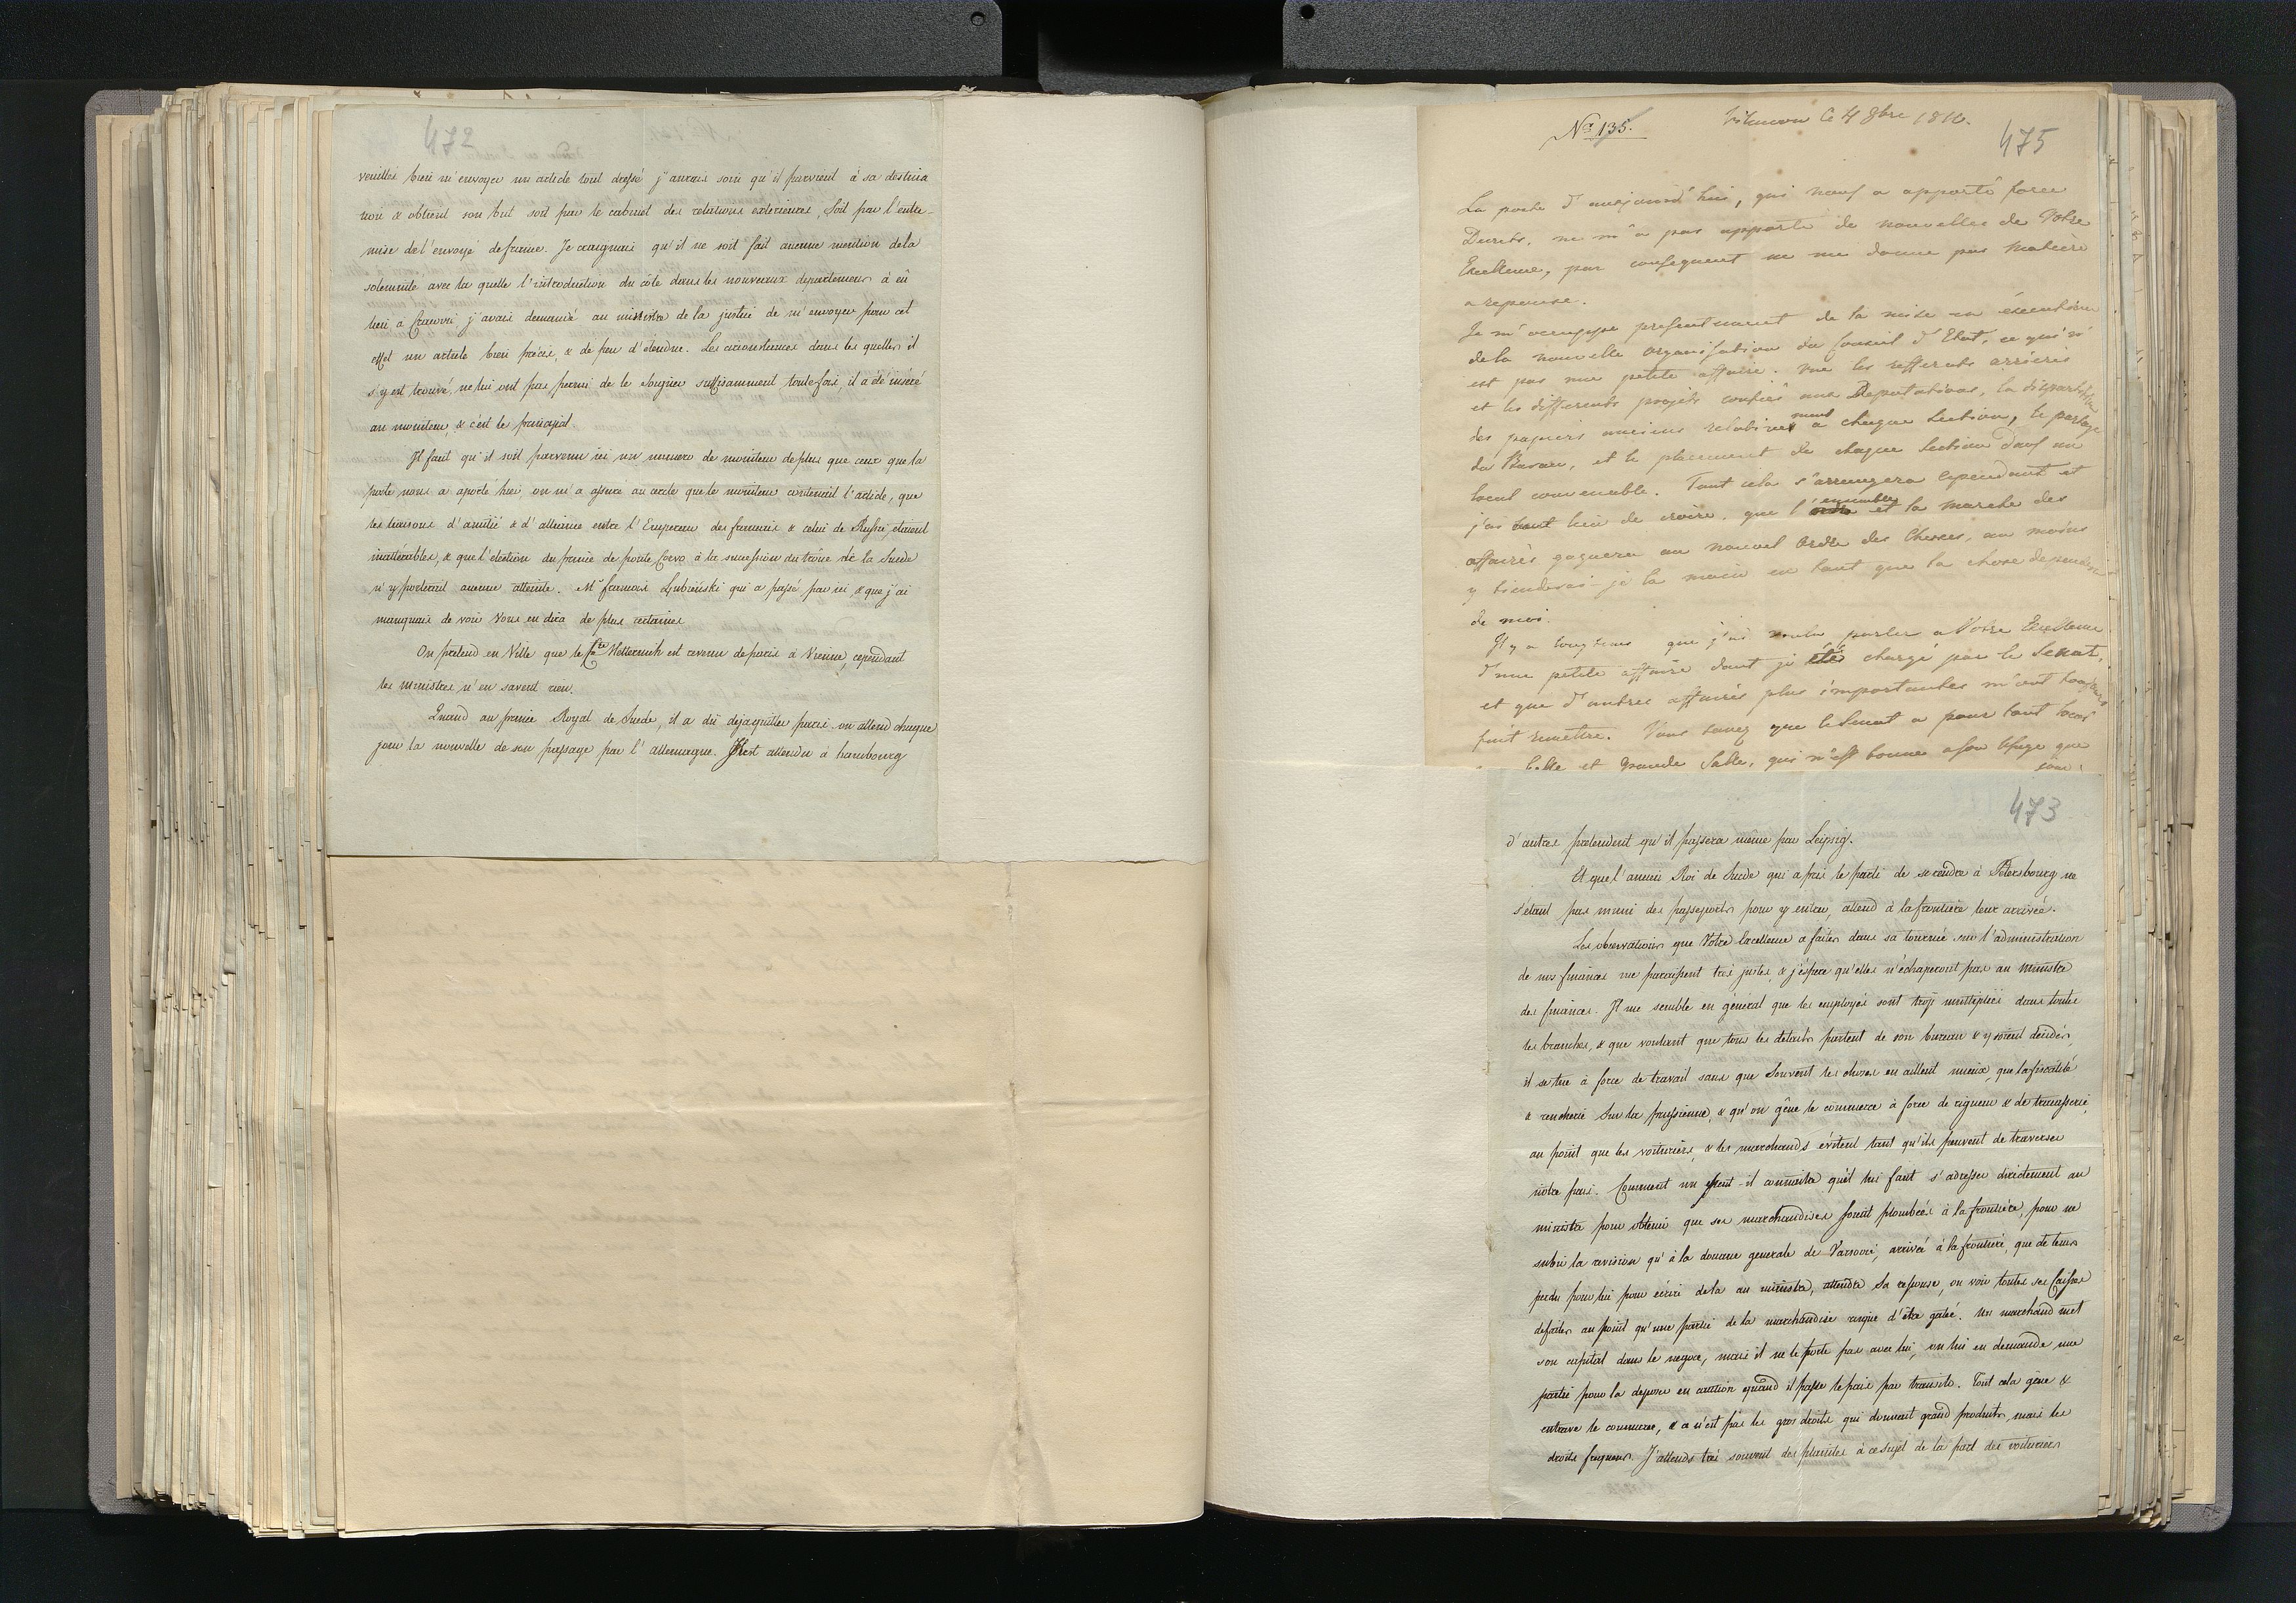 472
veuillés bien m'envoyer un article tout dressé j'aurais soin qu'il parvient à sa destina
tion & obtient son but soit par le cabinet des relations exterieures, Soit par l'entre-
mise de l'envoyé de france. Je craignais qu'il ne soit fait aucune mention de la
solemnité avec la quelle l'introduction du côde dans les nouveaux departemens à eû
lieu a Cracovie j'avais demandé au ministre de la justice de m'envoyer pour cet
effet un article bien précis, & de peu d'etendue. Les circonstances dans les quelles il
s'y est trouvé, ne lui ont pas permis de le soigner suffisamment toutefois, il a été inséré
au moniteur, & c'est le principal.
Il faut qu'il soit parvenu ici un numero de moniteur de plus que ceux que la
poste nous a aporté hier, on m'a assuré au cercle que le moniteur contenait l'article, que
les liaisons d'amitié & d'alliance entre l'Empereur des francais & celui de Russie, etaient
inalterables, & que l'election du prince de ponte Corvo à la sucession du trône de la Suede
n'y porterait aucune atteinte. Mr francois Lubieński qui a passé par ici, & que j'ai
manquais de voir vous en dira de plus certaines
On pretend en Ville que le Cte Metternich est revenu de paris à Vienne, cependant
les ministres n'en savent rien.
Quand au prince Royal de Suede, il a dû deja quitter paris on attend chaque
jour la nouvelle de son passage par l'allemagne. Il est attendu à hambourg
No 135.
le 4 8bre 1810.
475
La poste d'aujourd'hui, qui nous a apporté force
Decrets, ne m'a pas apporté de nouvelles de Votre
Excellence, par consequent ne me donne pas matiere
a reponse.
Je m'occuppe presentement de la mise en éxécution
de la nouvelle organisation du Conseil d'Etat, ce qui n'
est pas une petite affaire. vue les refferents arrierés
et les differents projets confiés aux Deputations, la dispartition
des papiers anciens relativement a chaque Section, le partage
du Bureau, et le placement de chaque Section dans un
local convenable. Tout cela s'arrengera cependant et
j'ai tout lieu de croire, que l'ensemble et la marche des
affaires gagnera au nouvel Ordre des Choses, au moins
y tienderai-je la main en tant que la chose dependera
de moi.
Il y a longtems que j'ai voulu parler a Votre Excellence
d'une petite affaire dont je été chargé par le Senat,
et que d'autres affaires plus importantes m'ont toujours
fait remettre. Vous savez que le Senat a pour tout local
belle et grande Salle, qui n'est bonne a son Usage que
473
d'autres pretendent qu'il passera même par Leipsig.
Et que l'ancien Roi de Suede qui a pris le parti de se rendre à Petersbourg ne
s'etant pas muni des passeports pour y entrer, attend à la frontiere leur arrivée.
Les observations que Votre Excellence a faites dans sa tournée sur l'administration
de nos finances me paraissent tres justes, & j'éspere qu'elles n'échaperont pas au ministre
des finances. Il me semble en général que les employés sont trop multipliés dans toutes
les branches, & que voulant que tous les details partent de son bureau & y soient decidés,
il se tue à force de travail sans que souvent les choses en aillent mieux, que la fiscalité
& rencherie sur la prussienne, & qu'on gêne le commerce à force de rigueur & de tracasserie,
au point que les voituriers, & les marchands évitent tant qu'ils peuvent de traverser
nôtre pais. Comment un peut-il connaitre qu'il lui faut s'adresser directement au
ministre pour obtenir que ses marchandises soient plombées à la frontière, pour ne
subir la revision qu'à la douane generale de Varsovie, arrivé à la frontiere, que de tems
perdu pour lui pour écrire de la au ministre, attendre sa reponse, ou voir toutes ses caisses
defaites au point qu'une partie de la marchandise risque d'être gatée. Un marchand met
son capital dans le negoce, mais il ne le porte pas avec lui, on lui en demande une
partie pour la deposer en caution quand il passe le pais par transito. Tout cela gêne &
entrave le commerce, & ce n'est pas les gros droits qui donnent grand produits, mais les
droits frequens. J'attends très souvent des plaintes à ce sujet de la part des voituriers